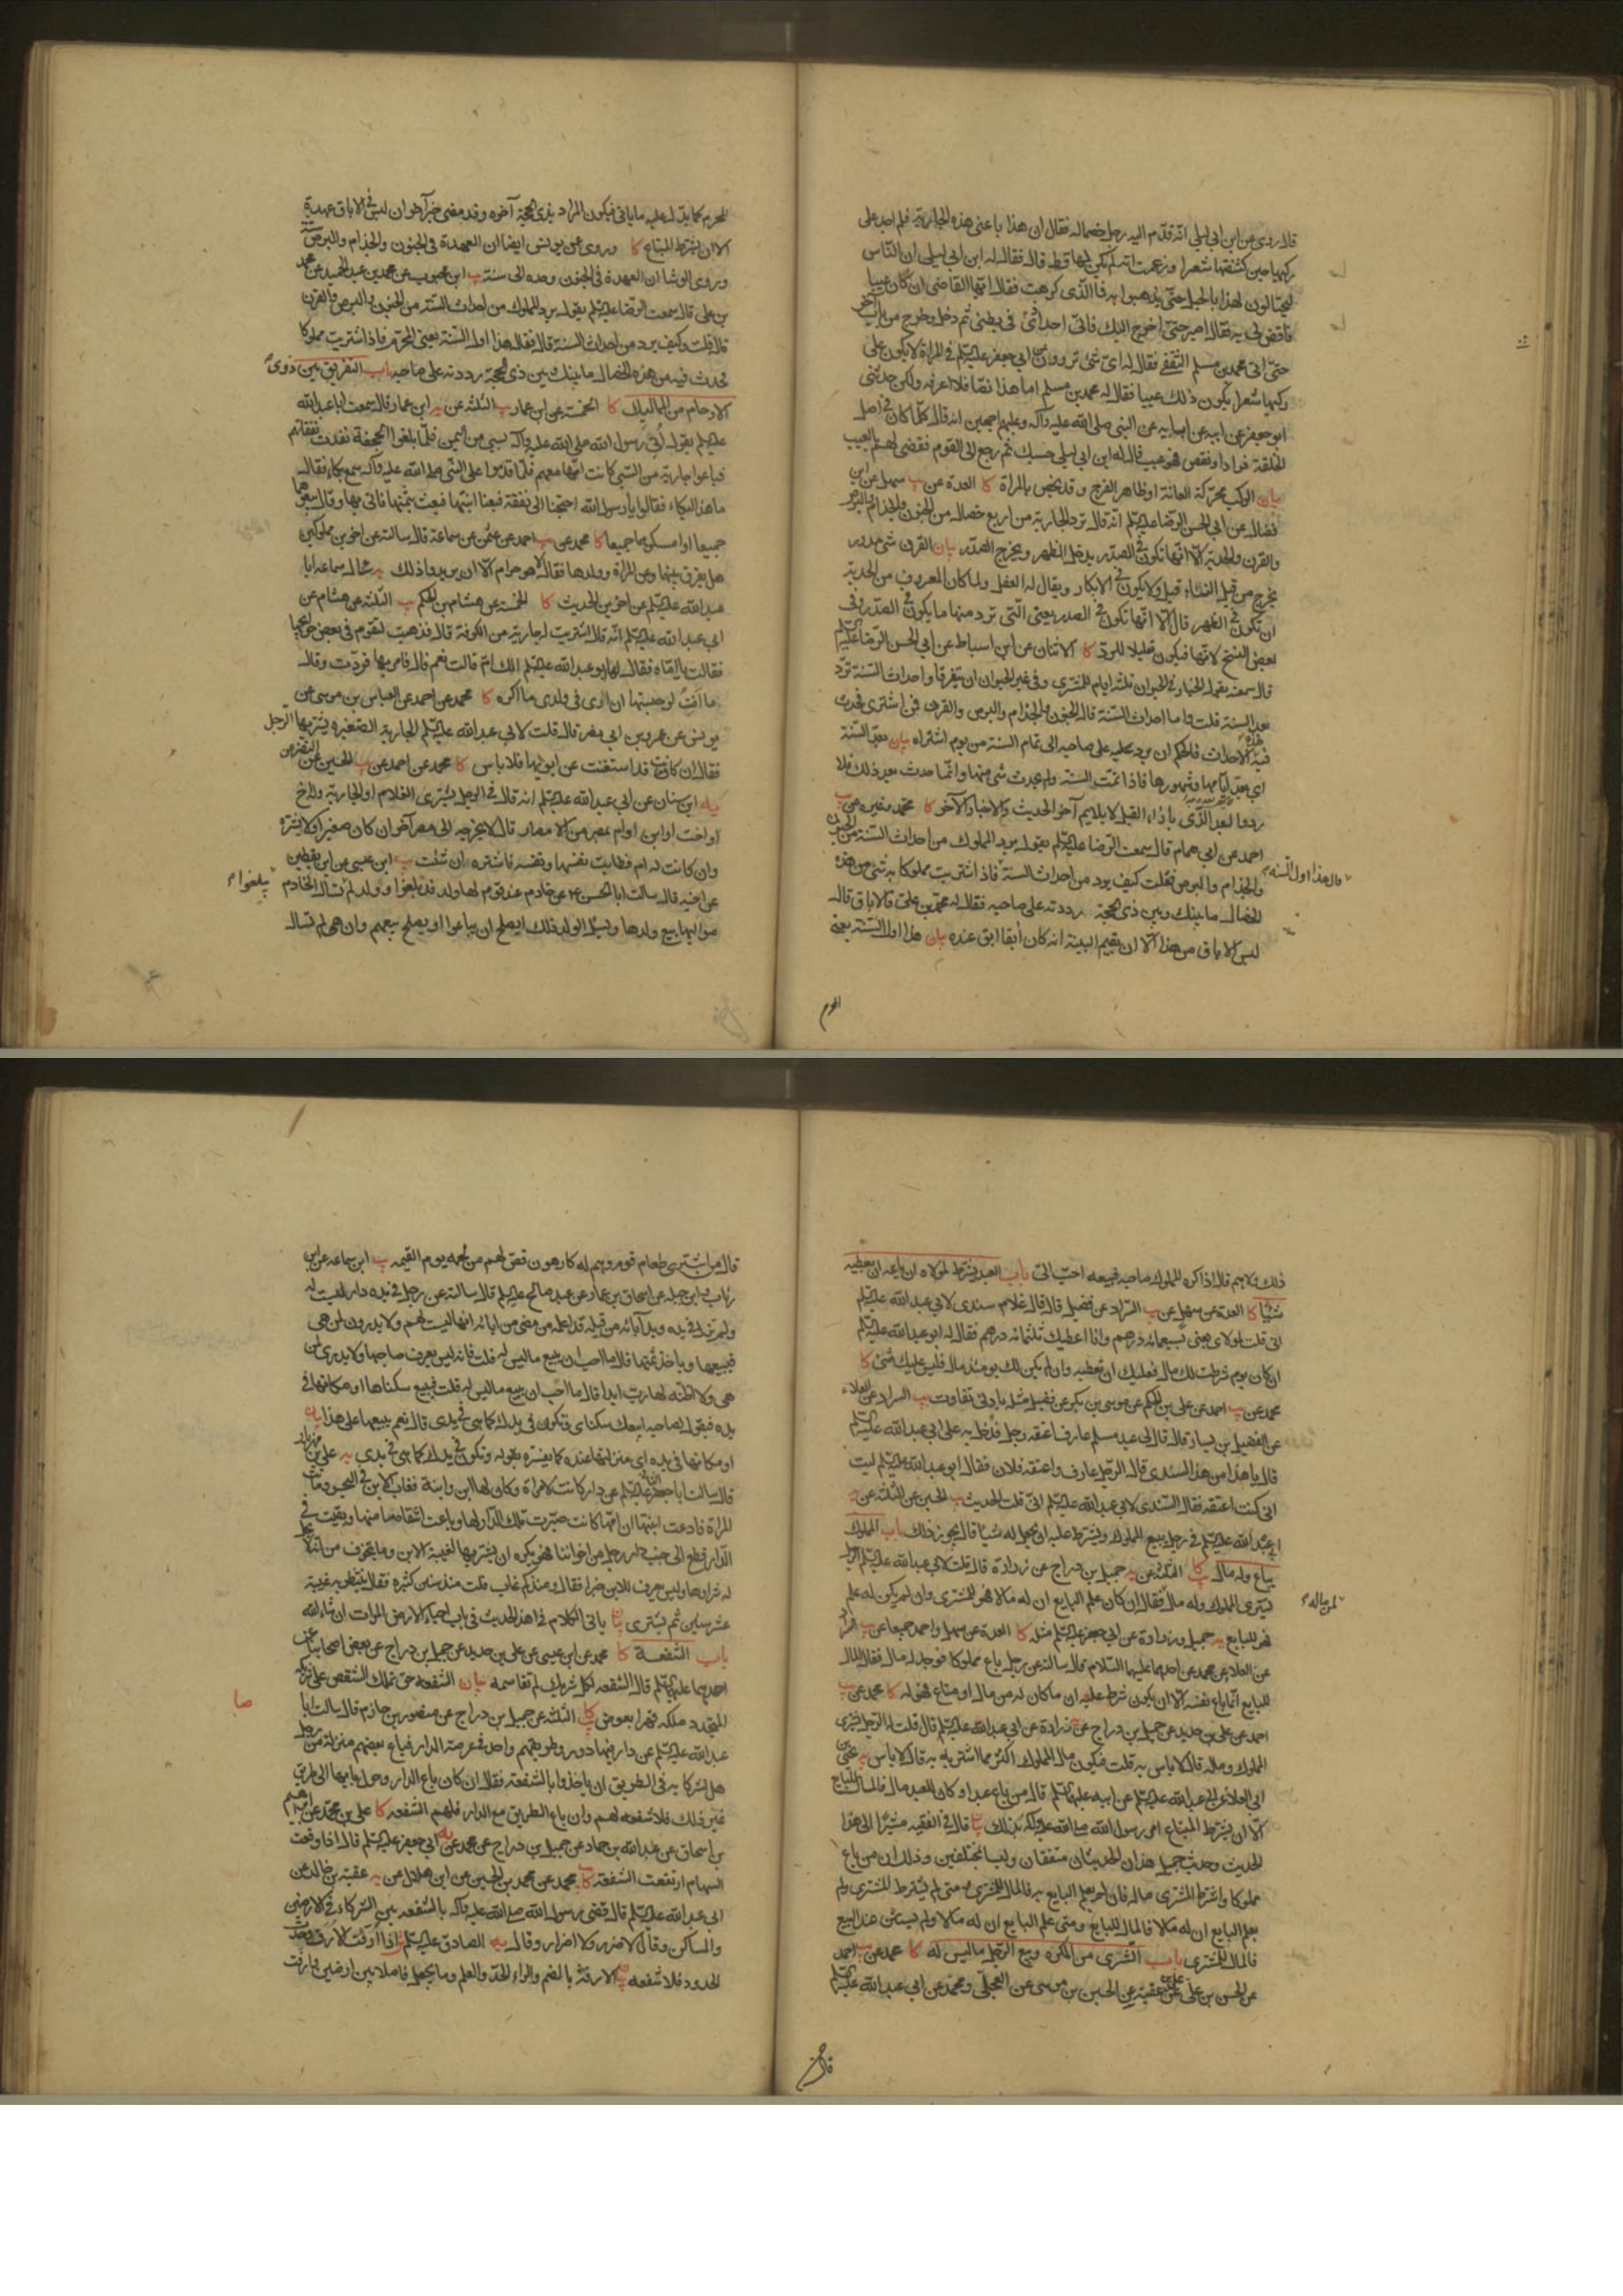 قال روى عن ابن ابي ليلى انه قدم اليه رجل خصما له فقال ان هذا باعني هذه الجارية فلم اجد على
ركبها حين كشفتها شعرا وزعمت انه لم يكن لها قط قال فقال له ابن ابي ليلى ان الناس
ليحتالون لهذا بالحيل حتى يذهبوا به فما الذي كرهت فقال ايها القاضي ان كان عيبا
فاقض لي به فقال اصبر حتى اخرج اليك فاني اجد اذى في بطني ثم دخل وخرج من باب آخر
حتى اتى محمد بن مسلم الثقفي فقال له اي شيء تروون عن ابي جعفر عليه السلم في المراة لا يكون على
ركبها شعر ايكون ذلك عيبا فقال له محمد بن مسلم اما هذا نصا فلا اعرفه ولكن حدثني
ابو جعفر عن ابيه عن ابائه عن النبي صلى الله عليه وآله وعليهم اجمعين انه قال كلما كان في اصل
الخلقة فزاد او نقص فهو عيب فقال له ابن ابي ليلى حسبك ثم رجع الى القوم فقضى لهم بالعيب
بيان الركب محركة العانة او ظاهر الفرج وقد يخص بالمراة كا العدة عن سهل عن ابن
فضال عن ابي الحسن الرضا عليه السلم انه قال ترد الجارية من اربع خصال من الجنون والجذام والبرص
والقرن والحدبة الا انها تكون في الصدر يدخل الظهر ويخرج الصدر بيان القرن شيء مدور
يخرج من قبل النساء قيل ولا يكون في الابكار ويقال له العفل ولما كان المعروف من الحدبة
ان تكون في الظهر قال الا انها تكون في الصدر يعني التي ترد منها ما يكون في الصدر وفي
بعض النسخ لانها فيكون تعليلا للرد كا الاثنان عن ابن اسباط عن ابي الحسن الرضا عليه السلم
قال سمعته يقول الخيار في الحيوان ثلثة ايام للمشتري وفي غير الحيوان ان يتفرقا واحداث السنة ترد
بعد السنة قلت وما احداث السنة قال الجنون والجذام والبرص والقرن فمن اشترى فحدث
فيه هذه الاحداث فالحكم ان يرد على صاحبه الى تمام السنة من يوم اشتراه بيان بعد السنة
اي بعد ايامها وشهورها فاذا تمت السنة ولم يحدث شيء منها وانما حدث بعد ذلك فلا
احمد عن ابي همام قال سمعت الرضا عليه السلم يقول يرد المملوك من احداث السنة من الجنون
والجذام والبرص فقلت كيف يرد من احداث السنة فاذا اشتريت مملوكا به شيء من هذه
قال هذا اول السنة
الخصال ما بينك وبين ذي الحجة رددته على صاحبه فقال له محمد بن علي فالاباق قال
ليس الاباق من هذا الا ان يقيم البينة انه كان آبقا ابق عنده بيان هذا اول السنة يعني
المحرم كما يدل عليه ما ياتي فيكون المراد بذي الحجة آخره وقد مضى خبر آخر هو ان ليس في الاباق عهدة
الا ان يشترط المبتاع كا وروى عن يونس ايضا ان العهدة في الجنون والجذام والبرص سنة
وروى الوشا ان العهدة في الجنون وحده الى سنة ابن محبوب عن محمد بن عبد الحميد عن محمد
بن علي قال سمعت الرضا عليه السلم يقول يرد المملوك من احداث السنة من الجنون والبرص والقرن
قال قلت وكيف يرد من احداث السنة قال فقال هذا اول السنة يعني المحرم فاذا اشتريت مملوكا
فحدث فيه من هذه الخصال ما بينك وبين ذي الحجة رددته على صاحبه باب التفريق بين ذوي
الارحام من المماليك كا الخمسة عن ابن عمار الثلثة عن ابن عمار قال سمعت ابا عبد الله
عليه السلم يقول اتي رسول الله صلى الله عليه وآله بسبي من اليمن فلما بلغوا الجحفة نفدت نفقاتهم
فباعوا جارية من السبي كانت امها معهم فلما قدموا على النبي صلى الله عليه وآله سمع بكاء فقال
ما هذا البكاء فقالوا يا رسول الله احتجنا الى نفقة فبعنا ابنتها فبعث بثمنها فاتي بها وقال بيعوهما
جميعا او امسكوهما جميعا كا محمد عن احمد عن عثمن عن سماعة قال سالته عن اخوين مملوكين
هل يفرق بينهما وعن المراة وولدها فقال لا هو حرام الا ان يريدوا ذلك سال سماعة ابا
عبد الله عليه السلم عن اخوين الحديث كا الخمسة عن هشام بن الحكم الثلثة عن هشام عن
ابي عبد الله عليه السلم انه قال اشتريت له جارية من الكوفة قال فذهبت لتقوم في بعض حوائجها
فقالت يا اماه فقال لها ابو عبد الله عليه السلم الك ام قالت نعم قال فامر بها فردت وقال
ما امنت لو حبستها ان ارى في ولدي ما اكره كا محمد عن احمد عن العباس بن موسى عن
يونس عن عمرو بن ابي نصر قال قلت لابي عبد الله عليه السلم الجارية الصغيرة يشتريها الرجل
فقال ان كانت قد استغنت عن ابويها فلا باس كا محمد عن احمد عن الحسين عن النضر عن
ابن سنان عن ابي عبد الله عليه السلم انه قال في الرجل يشتري الغلام او الجارية وله اخ
او اخت او اب او ام بمصر من الامصار قال لا يخرجه الى مصر آخر ان كان صغيرا ولا يشتره
وان كانت له ام فطابت نفسها ونفسه فاشتره ان شئت ابن عيسى عن ابن يقطين
عن اخيه قال سالت ابا الحسن عن خادم عند قوم لها ولد قد بلغوا وولد لم يبلغوا تسال الخادم
مواليها بيع ولدها ويسئل الولد ذلك ايصلح ان يباعوا او يصلح بيعهم وان هي لم تسال
ذلك ولا هم قال اذا كره المملوك صاحبه فبيعه احب الي باب العبد يشترط لمولاه ان باعه ان يعطيه
شيئا كا العدة عن سهل عن السراد عن فضيل قال قال غلام سندي لابي عبد الله عليه السلم
اني قلت لمولاي بعني بسبعمائة درهم وانا اعطيك ثلثمائة درهم فقال له ابو عبد الله عليه السلم
ان كان يوم شرطت لك مال فعليك ان تعطيه وان لم يكن لك يومئذ مال فليس عليك شيء كا
محمد عن احمد عن علي بن الحكم عن موسى بن بكر عن فضيل مثله بادنى تفاوت السراد عن العلاء
عن الفضيل بن يسار قال قال لي عبد مسلم عارف اعتقه رجل فدخل به على ابي عبد الله عليه السلم
قال يا هذا من هذا السندي قال الرجل عارف واعتقه فلان فقال ابو عبد الله عليه السلم ليت
اني كنت اعتقته فقال السندي لابي عبد الله عليه السلم اني قلت الحديث الحسين عن الثلثة عن
ابي عبد الله عليه السلم في رجل يبيع المملوك ويشترط عليه ان يجعل له شيئا قال يجوز ذلك باب المملوك
يباع وله مال كا الثلثة عن جميل بن دراج عن زرارة قال قلت لابي عبد الله عليه السلم الرجل
يشتري المملوك وله مال لمن ماله فقال ان كان علم البايع ان له مالا فهو للمشتري وان لم يكن له علم
فهو للبايع جميل وزرارة عن ابي جعفر عليه السلم مثله كا العدة عن سهل واحمد جميعا عن السراد
عن العلاء عن محمد عن احدهما عليهما السلام قال سالته عن رجل باع مملوكا فوجد له مال فقال المال
للبايع انما باع نفسه الا ان يكون شرط عليه ان ما كان له من مال او متاع فهو له كا محمد عن
احمد عن علي بن حديد عن جميل بن دراج عن زرارة عن ابي عبد الله عليه السلم قال قلت له الرجل يشتري
المملوك وماله قال لا باس به قلت فيكون مال المملوك اكثر مما اشتراه به قال لا باس به
ابي العلاء عن ابي عبد الله عليه السلم عن ابيه عليه السلم قال من باع عبدا وكان للعبد مال فالمال للبايع
الا ان يشترط المبتاع امر رسول الله صلى الله عليه وآله بذلك بيان قال في الفقيه مشيرا الى هذا
الحديث وحديث جميل هذان الحديثان متفقان وليسا بمختلفين وذلك ان من باع
مملوكا واشترط المشتري ماله فان لم يعلم البايع به فالمال للمشتري ومتى لم يشترط المشتري ولم
يعلم البايع ان له مالا فالمال للبايع ومتى علم البايع ان له مالا ولم يستثن عند البيع
فالمال للمشتري باب الشرى من المكره وبيع الرجل ما ليس له كا محمد عن احمد
عن الحسن بن علي عن علي بن عقبة عن الحسين بن موسى عن العجلي ومحمد عن ابي عبد الله عليه السلم
قال من اشترى طعام قوم وهم له كارهون قص لهم من لحمه يوم القيمة ابن سماعة عن ابن
رباب وابن جبلة عن اسحاق بن عمار عن عبد صالح عليه السلم قال سالته عن رجل في يده دار ليست له
ولم تزل في يده ويد آبائه من قبله قد اعلمه من مضى من ابائه انها ليست لهم ولا يدرون لمن هي
فيبيعها وياخذ ثمنها قال ما احب ان يبيع ما ليس له قلت فانه ليس يعرف صاحبها ولا يدري لمن
هي ولا اظنه لها رب ابدا قال ما احب ان يبيع ما ليس له قلت فيبيع سكناها او مكانها في
يده فيقول لصاحبه ابيعك سكناي وتكون في يدك كما هي في يدي قال نعم يبيعها على هذا بيان
او مكانها في يده اي منزلتها عنده كما يفسره بقوله وتكون في يدك كما هي في يدي علي بن مهزيار
قال سالت ابا جعفر الثاني عليه السلم عن دار كانت لامراة وكان لها ابن وابنة فغاب الابن في البحر وماتت
المراة فادعت ابنتها ان امها كانت صيرت تلك الدار لها وباعت اشقاصا منها وبقيت في
الدار قطعة الى جنب دار رجل من اخواننا فهو يكره ان يشتريها لغيبة الابن وما يتخوف من ان لا يحل
له شراؤها وليس يعرف للابن خبرا فقال ومنذ كم غاب قلت منذ سنين كثيرة فقال ينتظر به غيبة
عشر سنين ثم يشترى بيان ياتي الكلام في هذا الحديث في باب احياء الارض الموات ان شاء الله
باب الشفعة كا محمد عن ابن عيسى عن علي بن حديد عن جميل بن دراج عن بعض اصحابنا عن
احدهما عليهما السلم قال الشفعة لكل شريك لم تقاسمه بيان الشفعة حق تملك الشقص على شريكه
المتجدد ملكه قهرا بعوض كا الثلثة عن جميل بن دراج عن منصور بن حازم قال سالت ابا
عبد الله عليه السلم عن دار فيها دور وطريقهم واحد في عرصة الدار فباع بعضهم منزله من رجل
هل لشركائه في الطريق ان ياخذوا بالشفعة فقال ان كان باع الدار وحول بابها الى طريق
غير ذلك فلا شفعة لهم وان باع الطريق مع الدار فلهم الشفعة كا علي بن محمد عن ابراهيم
بن اسحاق عن عبد الله بن حماد عن جميل بن دراج عن محمد عن ابي جعفر عليه السلم قال اذا وقعت
السهام ارتفعت الشفعة كا محمد عن محمد بن الحسين عن ابن هلال عن عقبة بن خالد عن
ابي عبد الله عليه السلم قال قضى رسول الله صلى الله عليه وآله بالشفعة بين الشركاء في الارضين
والمساكن وقال لا ضرر ولا اضرار وقال الصادق عليه السلم اذا ارفت الارف وحدت
الحدود فلا شفعة بيان الارفة بالضم والراء الحد والعلم وما يجعل فاصلا بين ارضين وارفت